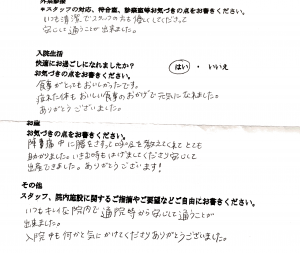 外来診療
＊スタッフの対応、待合室、診察室等お気づきの点をお書きください。
いつも清潔でスタッフの方も優しくしてくださって
安心して通うことが出来ました。
入院生活
快適にお過ごしになれましたか？ はい ・ いいえ
お気づきの点をお書きください。
食事がとってもおいしかったです。
疲れた体もおいしい食事のおかげで元気になれました。
ありがとうございました。
お産
お気づきの点をお書きください。
陣痛中に腰をさすって
教えてくれてとても
助かりました。いきむ時もはげましてくださり安心して
出産できました。ありがとうございます！
その他
スタッフ、院内施設に関するご指摘やご要望などご自由にお書きください。
いつもキレイな院内で通院時から安心して通うことが
出来ました。
入院中も何かと気にかけてくださりありがとうございました。